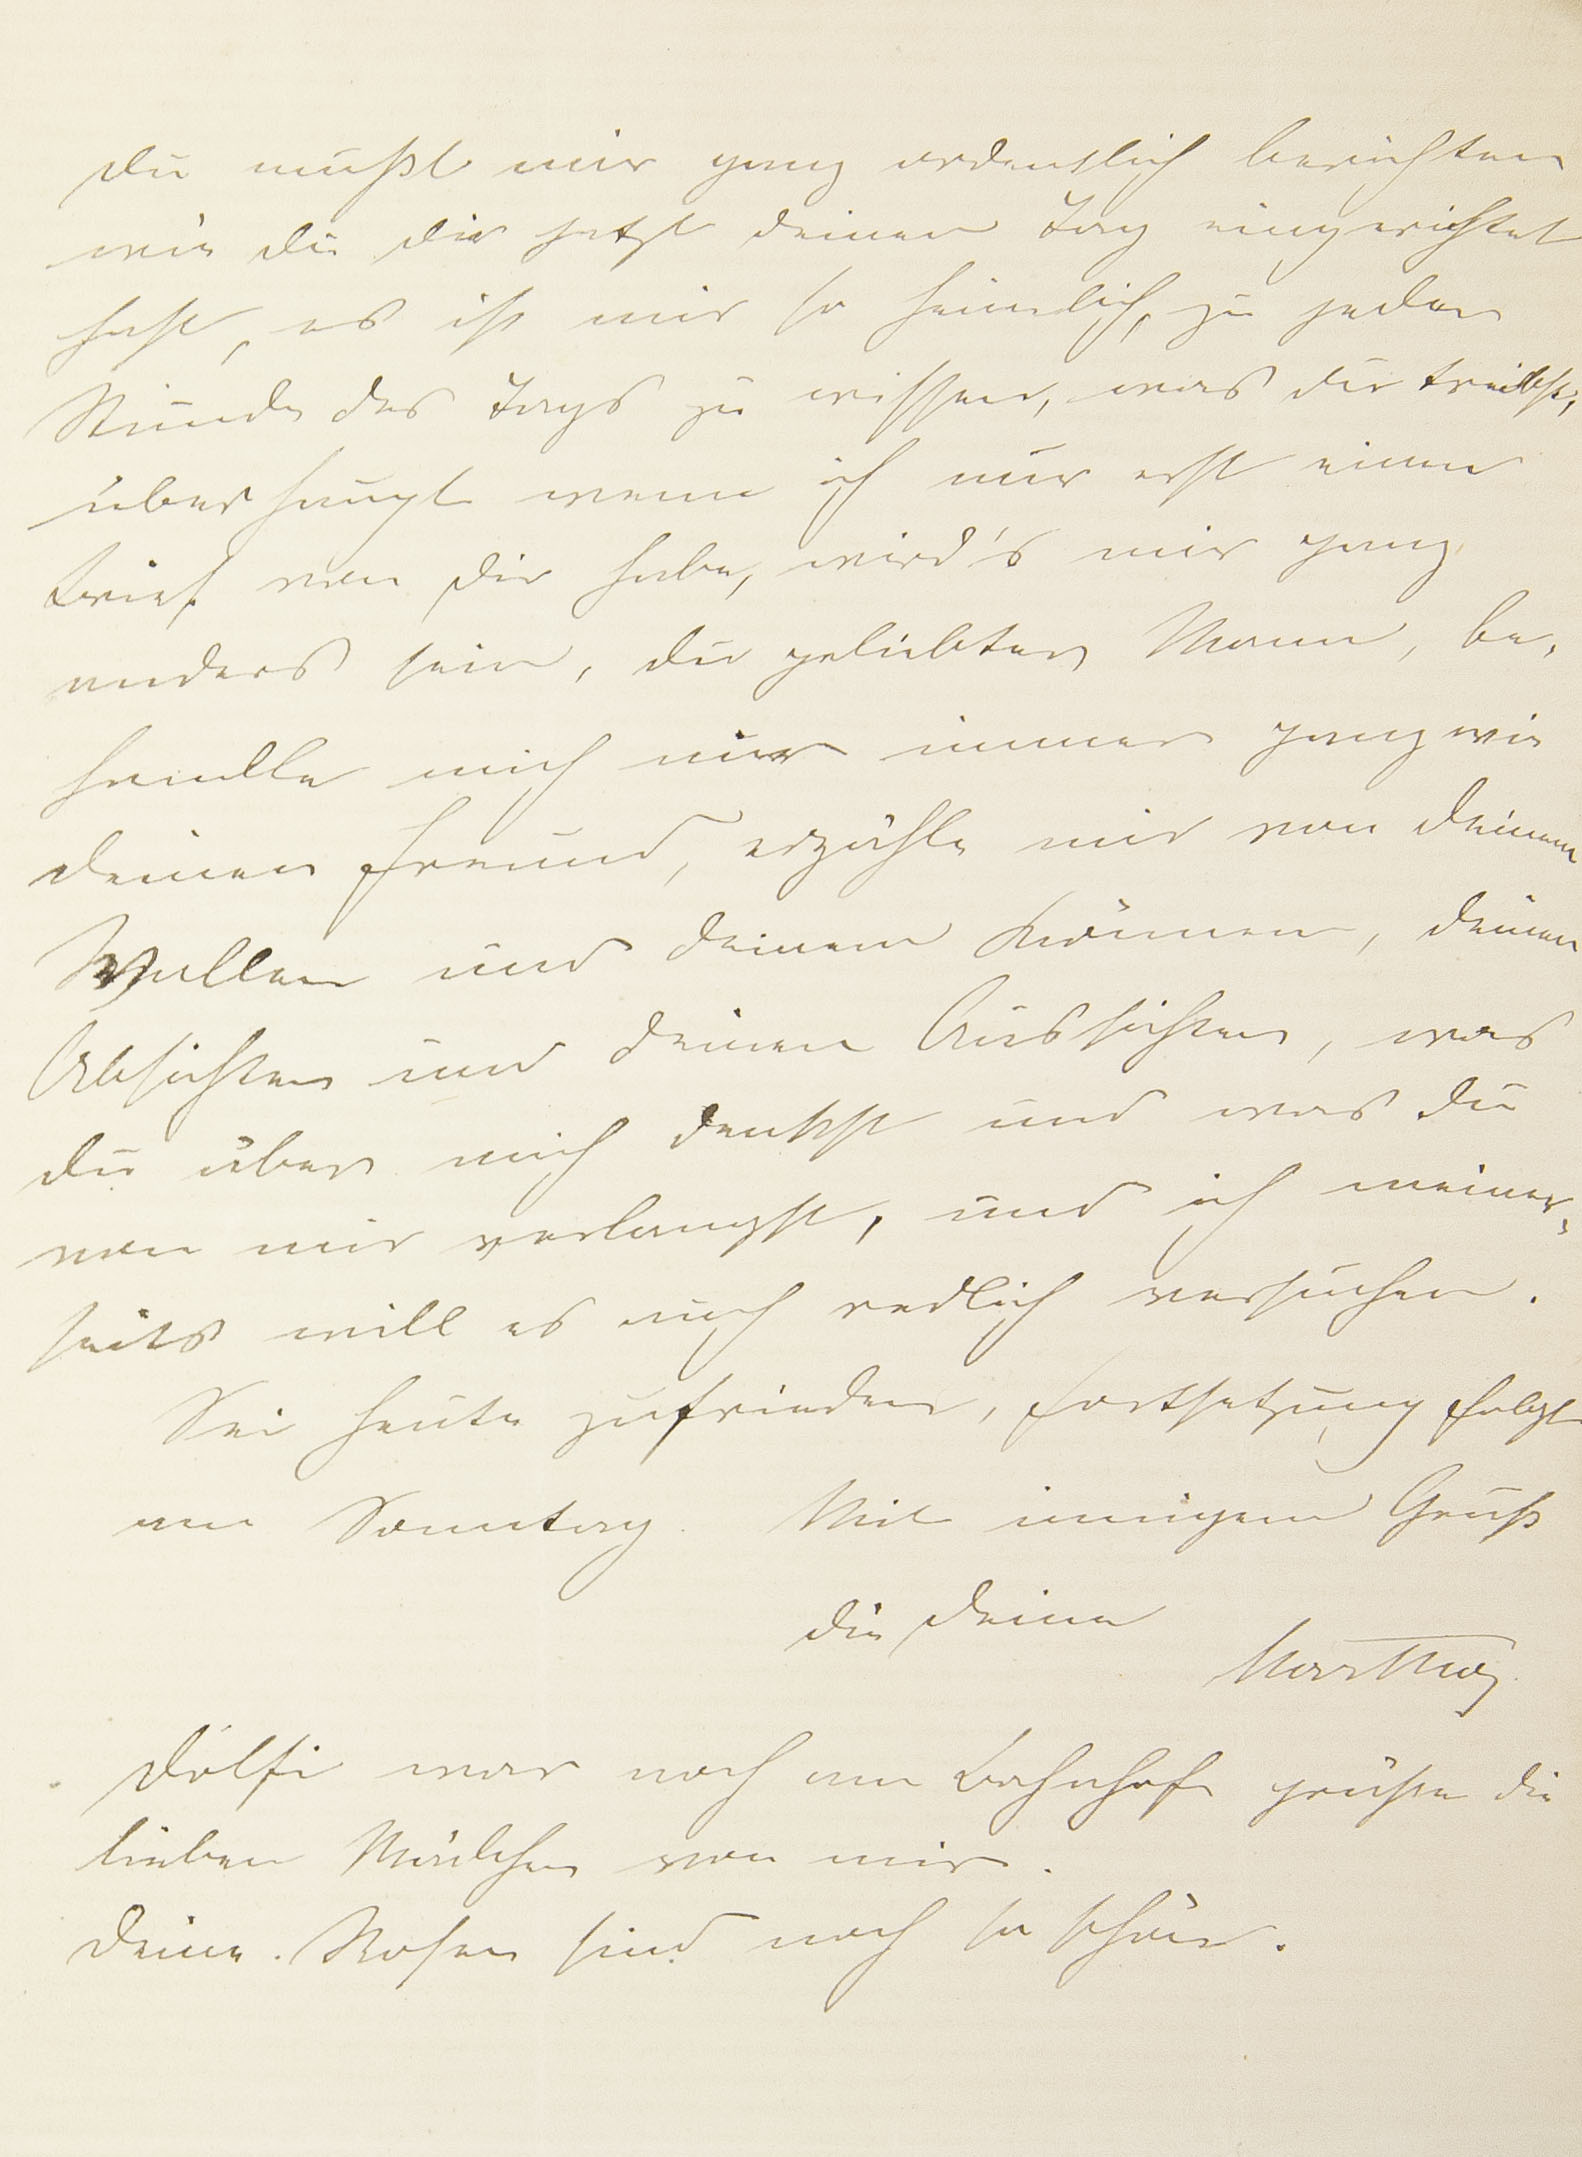 du mußt mir ganz ordentlich berichten
wie du dir jetzt deinen Tag eingerichtet
hast, es ist mir so heimlich, zu jeder
Stunde des Tags zu wissen, was du treibst,
überhaupt wenn ich nur erst einen
Brief von dir habe, wird's mir ganz
anders sein, du geliebter Mann, be-
handle mich nur immer ganz wie
deinen Freund, erzähle mir von deinem
Wollen und deinem Können, deinen
Absichten und deinen Aussichten, was
du über mich denkst und was du
von mir verlangst, und ich meiner-
seits will es auch redlich versuchen.
Sei heute zufrieden, Fortsetzung folgt
am Sonntag. Mit innigem Gruß
die deine
Martha
Dolfi war noch am Bahnhof grüße die
lieben Mädchen von mir.
Deine Rosen sind noch so schön.